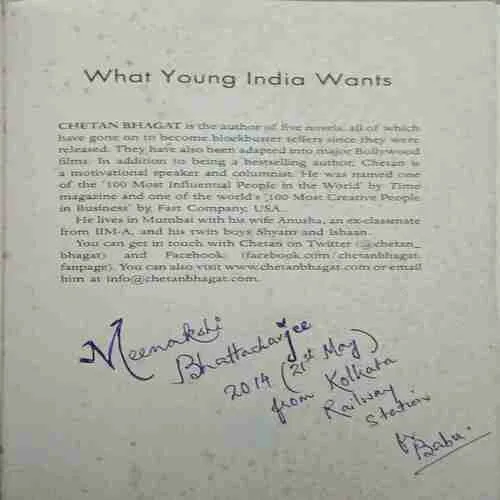 What Young India Wants
CHETAN BHAGAT is the author of five novels, all of which
have gone on to become blockbuster sellers since they were
released. They have also been adapted into major Bollywood
films. In addition to being a bestselling author, Chetan is
a motivational speaker and columnist. He was named one
of the '100 Most Influential People in the World' by Time
magazine and one of the world's '100 Most Creative People
in Business' by Fast Company, USA.
He lives in Mumbai with his wife Anusha, an ex-classmate
from IIM-A, and his twin boys Shyam and Ishaan.
You can get in touch with Chetan on Twitter (@chetan_
bhagat) and Facebook (facebook.com/chetanbhagat.
fanpage). You can also visit www.chetanbhagat.com or email
him at info@chetanbhagat.com.
Meenakshi
Bhattacharjee
2014 (21st May)
from Kolkata
Railway
Station
Babu.